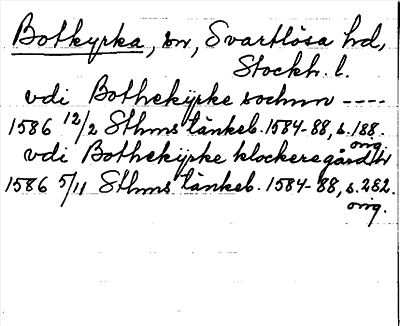 Botkyrka, sn, Svartlösa hd,
Stockh. l.
vdi Bothekÿrke sochnn ----
1586 12/2 Sthms tänkeb. 1584-88, s. 188.
orig.
vdi Bothekÿrke klockeregård
1586 5/11 Sthms tänkeb. 1584-88, s. 282.
orig.